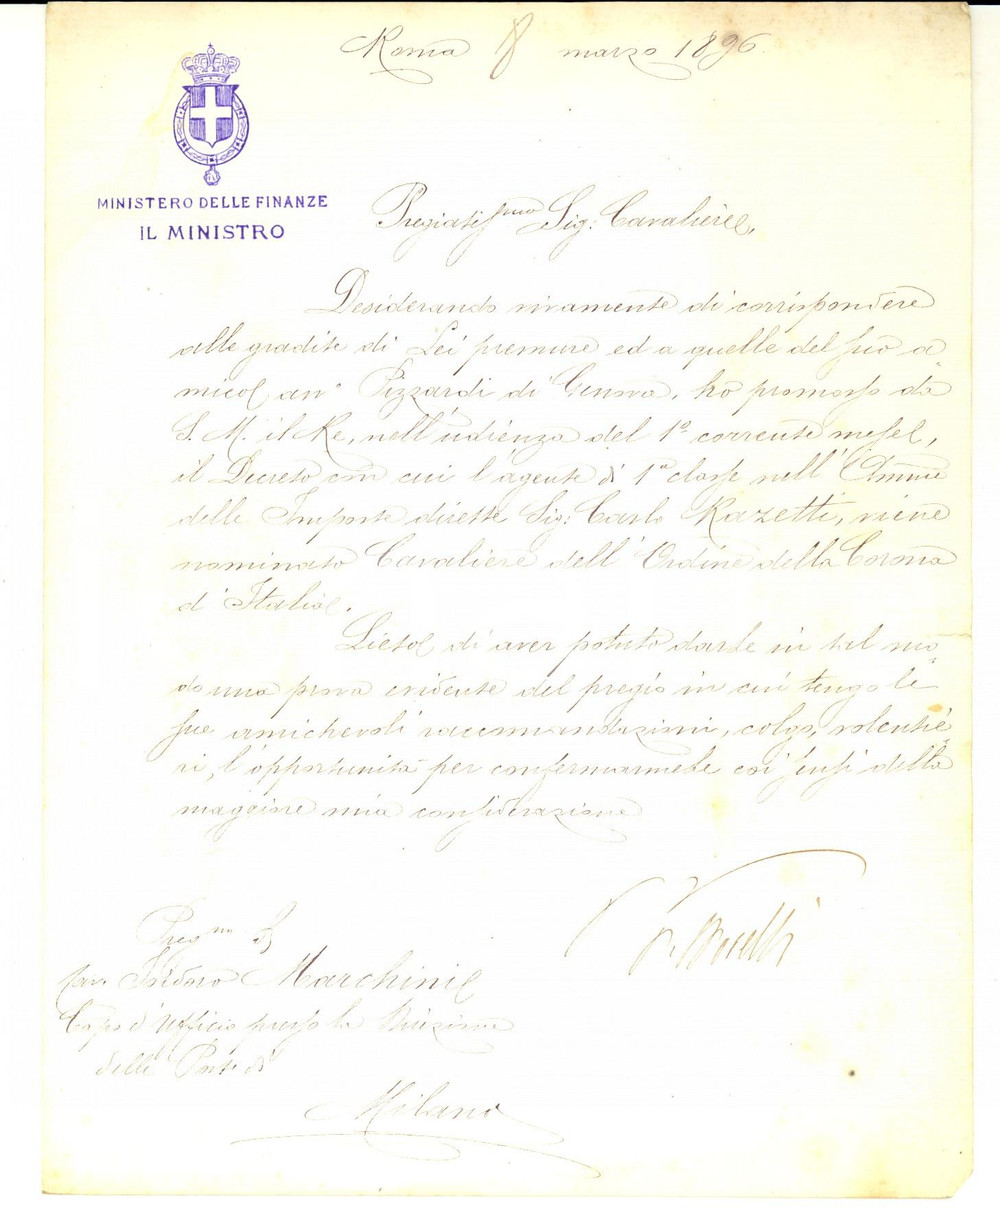 Roma 8 marzo 1896.
MINISTERO DELLE FINANZE
IL MINISTRO
Pregiatissmo Sig: Cavaliere,
Desiderando vivamente di corrispondere
alle gradite di Lei premure ed a quelle del suo a-
mico avvo Pizzardi di Genova, ho promosso da
S. M. il Re, nell'udienza del 1o corrente mese,
il Decreto con cui l'agente di 1a classe nell'Ammne
delle Imposte dirette Sig: Carlo Razetti, viene
nominato Cavaliere dell'Ordine della Corona
d'Italia.
Lieto di aver potuto darle in tal mo-
do una prova evidente del pregio in cui tengo le
sue amichevoli raccomandazioni, colgo, volentie-
ri, l'opportunità per confermarmele coi sensi della
maggiore mia considerazione
P. Boselli
Pregmo Sig
Cav. Isidoro Marchini
Capo d'Ufficio presso la Direzione
delle Poste di
Milano